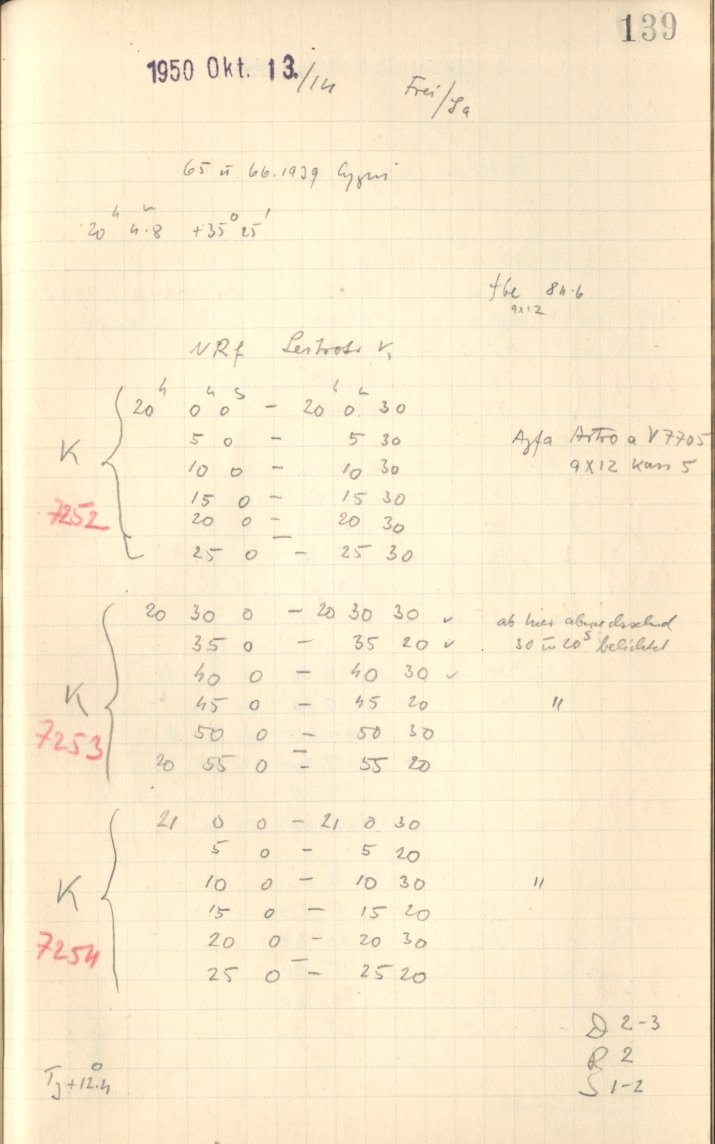 139
1950 Okt. 13./14 Frei/Sa
65 u 66.1939 Cygni
20h 4m.8 +35° 25'
fbe 84.6
9x12
NRf
20h 0m 0s - 20h 0m 30
5 0 - 5 30
Agfa Astro a V7705
K
10 0 - 10 30
9X12 Kass 5
7252
15 0 - 15 30
20 0 - 20 30
25 0 - 25 30
20 30 0 - 20 30 30 ✓
ab hier abwechselnd
35 0 - 35 20 ✓
30 u 20s belichtet
40 0 - 40 30 ✓
K
45 0 - 45 20 "
7253
50 0 - 50 30
20 55 0 - 55 20
21 0 0 - 21 0 30
5 0 - 5 20
K
10 0 - 10 30 "
15 0 - 15 20
7254
20 0 - 20 30
25 0 - 25 20
D 2-3
R 2
S 1-2
TJ +12.4°